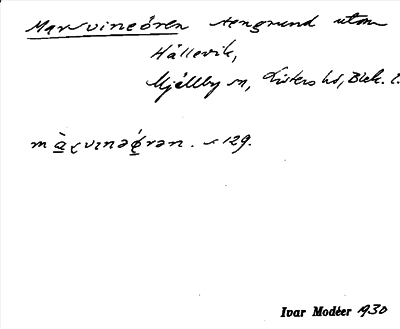 Marsvineören stengrund utom
Hällevik,
Mjällby sn, Listers hd, Blek. l.
129.
Ivar Modéer 1930